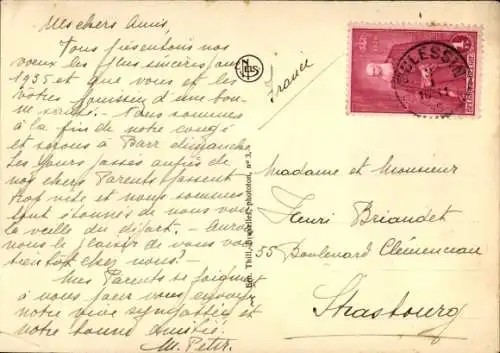 Mes chers Amis,
Nous présentons nos
vœux les plus sincères pour
1935 et que vous et les
vôtres jouissiez d'une bon-
ne santé. - Nous sommes
à la fin de notre congé
et serons à Barr dimanche.
Les jours passés auprès de
nos chers Parents passent
trop vite et nous sommes
tout étonnés de nous voir
la veille du départ. - Aurons
nous le plaisir de vous voir
bientôt chez nous? -
Mes Parents se joignent
à nous pour vous envoyer
notre vive sympathie et
notre bonne amitié.
M. Peter.
Edit. Thill, Bruxelles, phototon, nº 3.
France
CLESSIN
1F
Madame et Monsieur
Henri Briandet
55 Boulevard Clémenceau
Strasbourg